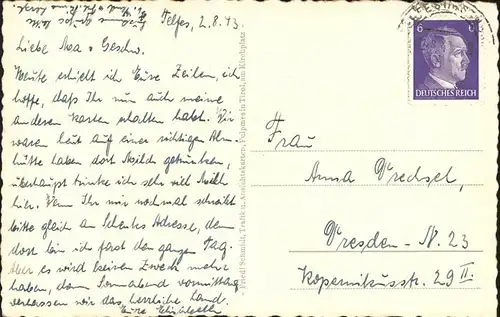 Telfes, 2.8.43.
Liebe Mea u. Geschw.
Heute erhielt ich Eure Zeilen, ich
hoffe, daß Ihr nun auch meine
anderen Karten erhalten habt. Wir
waren heut auf einer richtigen Alm-
hütte haben dort Milch getrunken,
überhaupt trinke ich sehr viel Milch
hier. Wenn Ihr mir nochmal schreibt
bitte gleich an Schenks Adresse, denn
dort bin ich fast den ganzen Tag.
Aber es wird keinen Zweck mehr
haben, denn Sonnabend vormittag
verlassen wir das herrliche Land.
Eure
Friedl Schmidt, Trafik u. Ansichtskarten, Fulpmes in Tirol, am Kirchplatz
6 6
DEUTSCHES REICH
Frau
Anna Drechsel,
Dresden-N. 23
Kopernikusstr. 29 II.